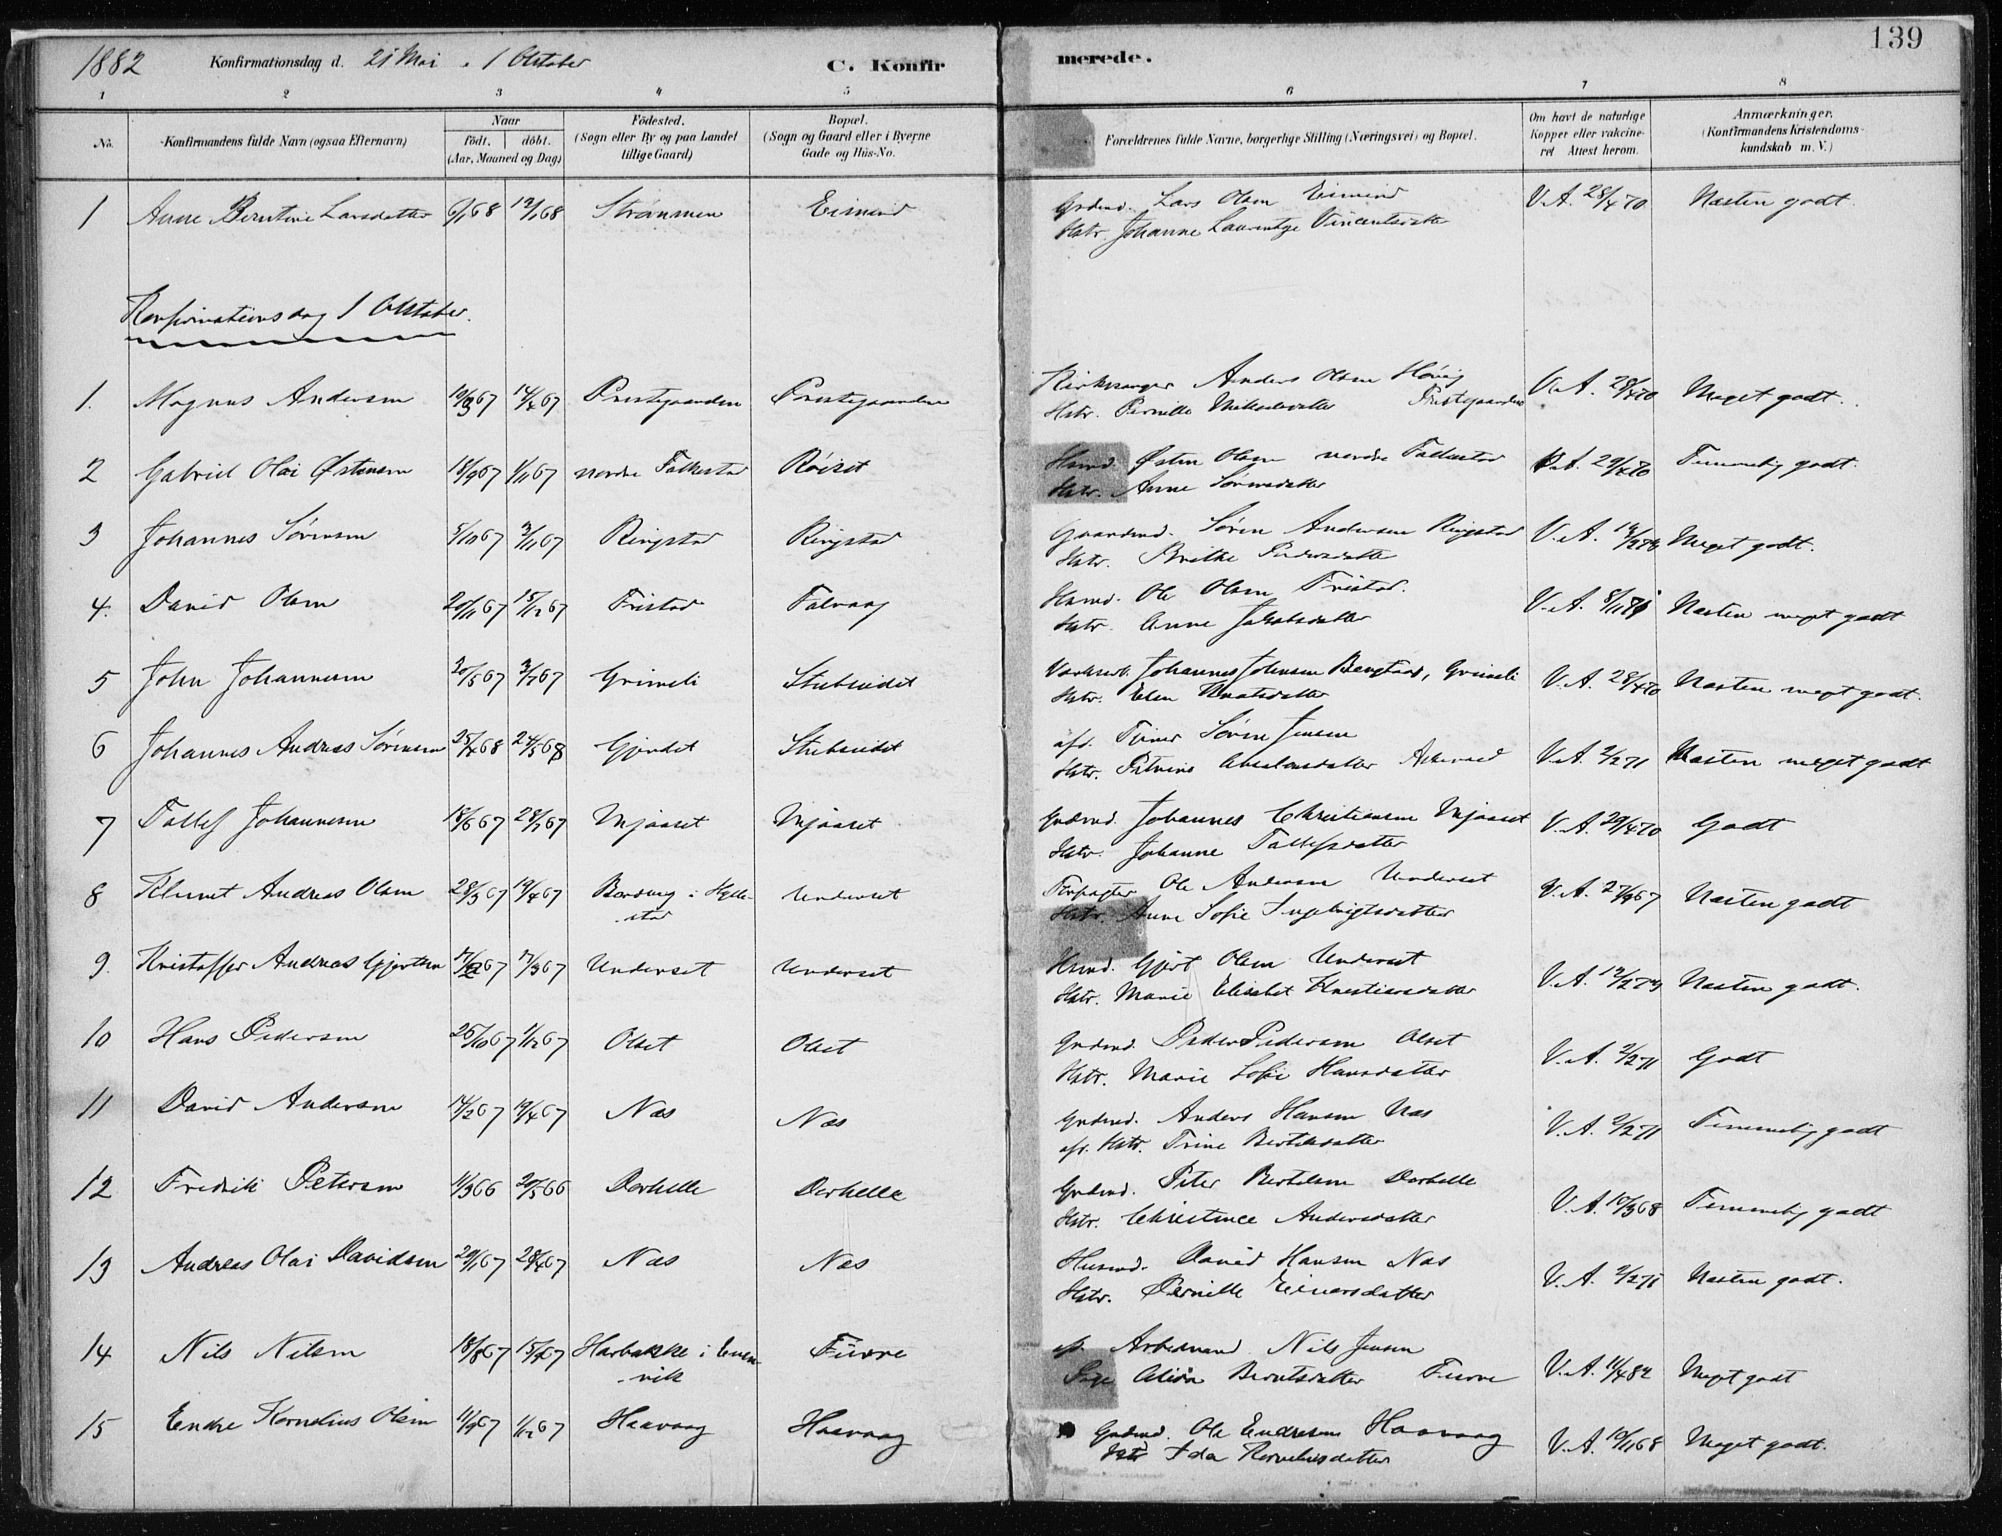 139
1882 Konfirmationsdag d. 21 Mai . 1 Oktober C. Konfirmerede.
1 2 3 4 5 6 7 8
No. Konfirmandens fulde Navn (ogsaa Efternavn) Naar født. døbt. (Aar, Maaned og Dag) Fødested. (Sogn eller By og paa Landet tillige Gaard) Bopæl. (Sogn og Gaard eller i Byerne Gade og Hus-No. Forældrenes fulde Navne, borgerlige Stilling (Næringsvei) og Bopæl. Om havt de naturlige Kopper eller vakcineret Attest herom. Anmærkninger. (Konfirmandens Kristendomskundskab m. V.)
1 Anne Berntine Larsdatter 6/1 68 19/1 68 Strømmen Eimind Grdmd. Lars Olsen Eimind V.A. 28/4 70 Næsten godt.
Hstr. Johanne Laurentze Vincentsdatter
Konfirmationsdag 1 Oktober.
1. Magnus Andersen 19/3 67 14/4 67 Prestegaarden Prestegaarden Kirkesanger Anders Olsen Høvig V.A. 28/4 70 Meget godt.
Hstr. Pernille Mikkelsdatter Prestegaarden
2 Gabriel Olai Østensen 18/9 67 1/11 67 nordre Falkestad Røiset Husmd. Østen Olsen nordre Falkestad V.A. 29/4 70 Temmelig godt.
Hstr. Anne Sørensdatter
3 Johannes Sørensen 5/10 67 3/11 67 Ringstad Ringstad Gaardmd. Søren Andersen Ringstad V.A. Meget godt.
Hstr. Brithe Pedersdatter
4. David Olsen 20/11 67 15/12 67 Fristad Falvaag Husmd. Ole Olsen Fristad. V.A. 8/11 81 Næsten meget godt
Hstr. Anne Jakobsdatter
5 John Johannesen 30/5 67 3/7 67 Grimeli Stubseidet Johannes Johnsen Bergstad, Grimeli V.A. 28/4 70 Næsten meget godt.
Hstr. Elen Knutsdatter
6 Johannes Andreas Sørensen 25/4 68 24/5 68 Gjerdet Stubseidet afd. Søren Jensen V.A. 2/2 71 Næsten meget godt
Hstr. Absalonsdatter
7 Tollef Johannesen 18/6 67 28/7 67 Mjaaset Mjaaset Grdmd. Johannes Christiansen Mjaaset V.A. 29/4 70 Godt
Hstr. Johanne Tollefsdatter
8 Klemet Andreas Olsen 28/3 67 19/4 67 i Hylle- Underset Forpagter Ole Andersen Underset V.A. 27/9 67 Næsten godt
stad Hstr. Anne Sofie Ingebrigtsdatter
9. Kristoffer Andreas Gjertsen 17/2 67 17/3 67 Underset Underset Husmd. Gjert Olsen Underset V.A. 19/2 79 Næsten godt.
Hstr. Marie Elisabet Kristiansdatter
10 Hans Pedersen 26/10 67 1/12 67 Olset Olset Grdmd. Peder Pedersen Olset V.A. 2/2 71 Godt
Hstr. Marie Sofie Hansdatter
11 David Andersen 14/2 67 19/4 67 Næs Næs Grdmd. Anders Hansen Næs V.A. 2/2 71 Temmelig godt
afd. Hstr. Trine Bertelsdatter
12 Fredrik Petersen 11/3 66 20/5 66 Dorhelle Dorhelle Grdmd. Peter Bertelsen Dorhelle V.A. 10/3 68 Temmelig godt
Hstr. Christence Andersdatter
13 Andreas Olai Davidsen 29/1 67 28/4 67 Næs Næs Husmd. David Hansen Næs V.A. 2/2 71 Næsten godt.
Hstr. Pernille Einarsdatter
14 Nils Nilsen 18/8 67 15/9 67 Harbakke i Even- Furre Nils Jensen V.A. 11/4 82 Meget godt
vik Pige Alida Berntsdatter Furre
15 Endre Kornelius Olsen 11/9 67 1/12 67 Haavaag Haavaag Grdmd. Ole Endresen Haavaag V.A. 10/11 68 Meget godt.
Hstr Ida Korneliusdatter